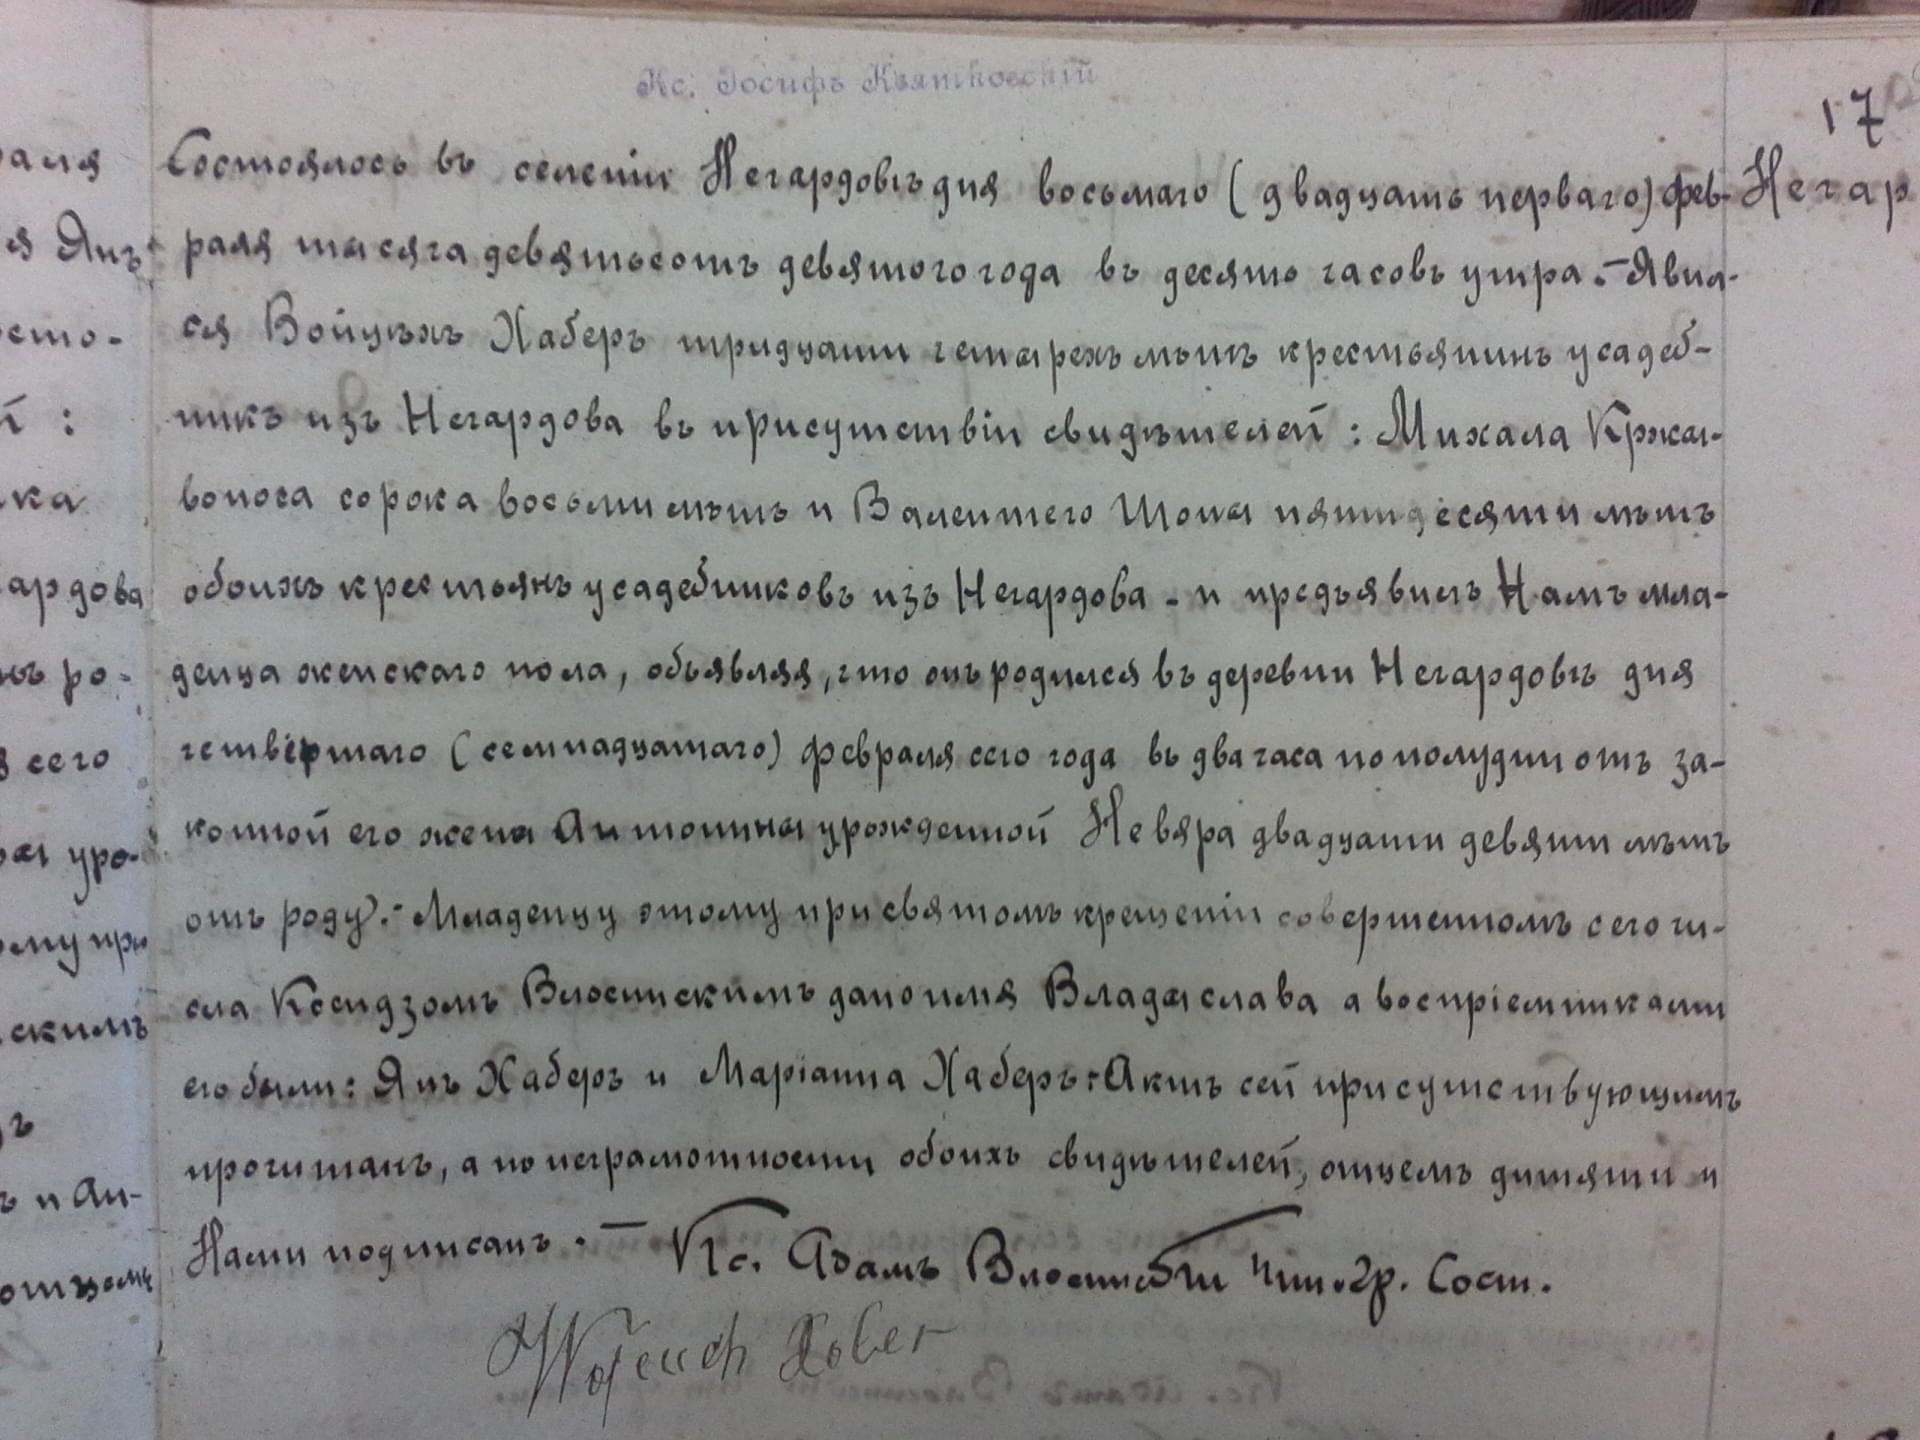 Кс. Іосифъ Квятковскій
17
Негар
Состоялось въ селеніи Негардовѣ дня восьмаго (двадцать перваго) фев-
раля тысяча девятьсотъ девятого года въ десять часовъ утра. – Явил-
ся Войцѣхъ Хаберъ тридцати четырехъ лѣтъ крестьянинъ усадеб-
никъ изъ Негардова въ присутствіи свидѣтелей: Михала Кржы-
воноса сорока восьми лѣтъ и Валентего Шоны пятидесяти лѣтъ
обоихъ крестьянъ усадебниковъ изъ Негардова - и предъявилъ Намъ мла-
денца женскаго пола, объявляя, что онъ родился въ деревни Негардовѣ дня
четвертаго (семнадцатаго) февраля сего года въ два часа по полудни отъ за-
конной его жены Антонины урожденной Невяра двадцати девяти лѣтъ
отъ роду. - Младенцу этому при святомъ крещеніи совершенномъ сего чи-
сла Ксендзомъ Влосинскимъ дано имя Владыслава а воспріемниками
его были: Янъ Хаберъ и Маріанна Хаберъ. Актъ сей присутствующимъ
прочитанъ, а по неграмотности обоихъ свидѣтелей, отцемъ дитяти и
Нами подписанъ. – Кс. Адамъ Чин. Гр. Сост.
Wojciech Haber
раля
я Янъ
осто-
й :
ка
ардова
нъ ро-
я сего
ры уро-
ому при
скимъ
ъ
ъ и Ан-
отцемъ